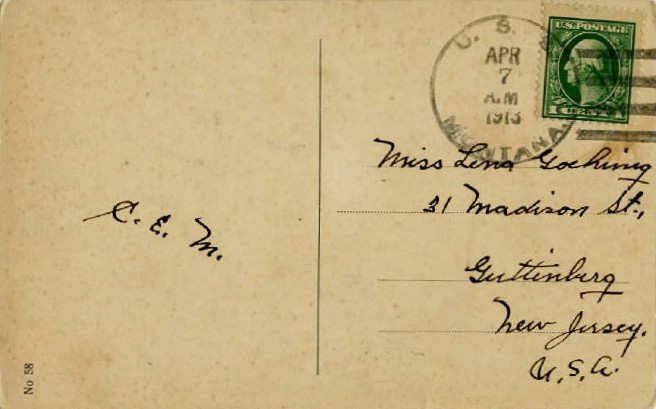 U. S. S.
APR
7
A.M
1913
MONTANA
U.S. POSTAGE
1 CENT 1
Miss Lena Goehring
31 Madison St.,
Guttenberg
New Jersey.
U.S.A.
C. E. M.
No 58